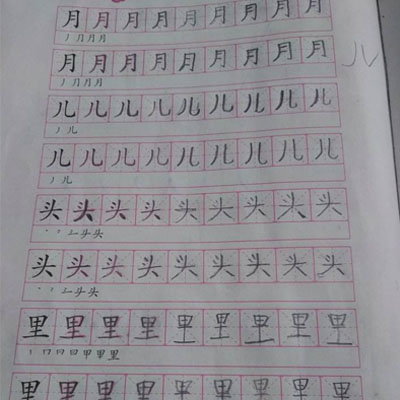 月月月月月月月月月
丿月月月
月月月月月月月月月
丿月月月
儿儿儿儿儿儿儿儿儿 儿
丿儿
儿儿儿儿儿儿儿儿儿
丿儿
头头头头头头头头头
头头头头头头头头头
里里里里里里里里里
里里里里里里里里里